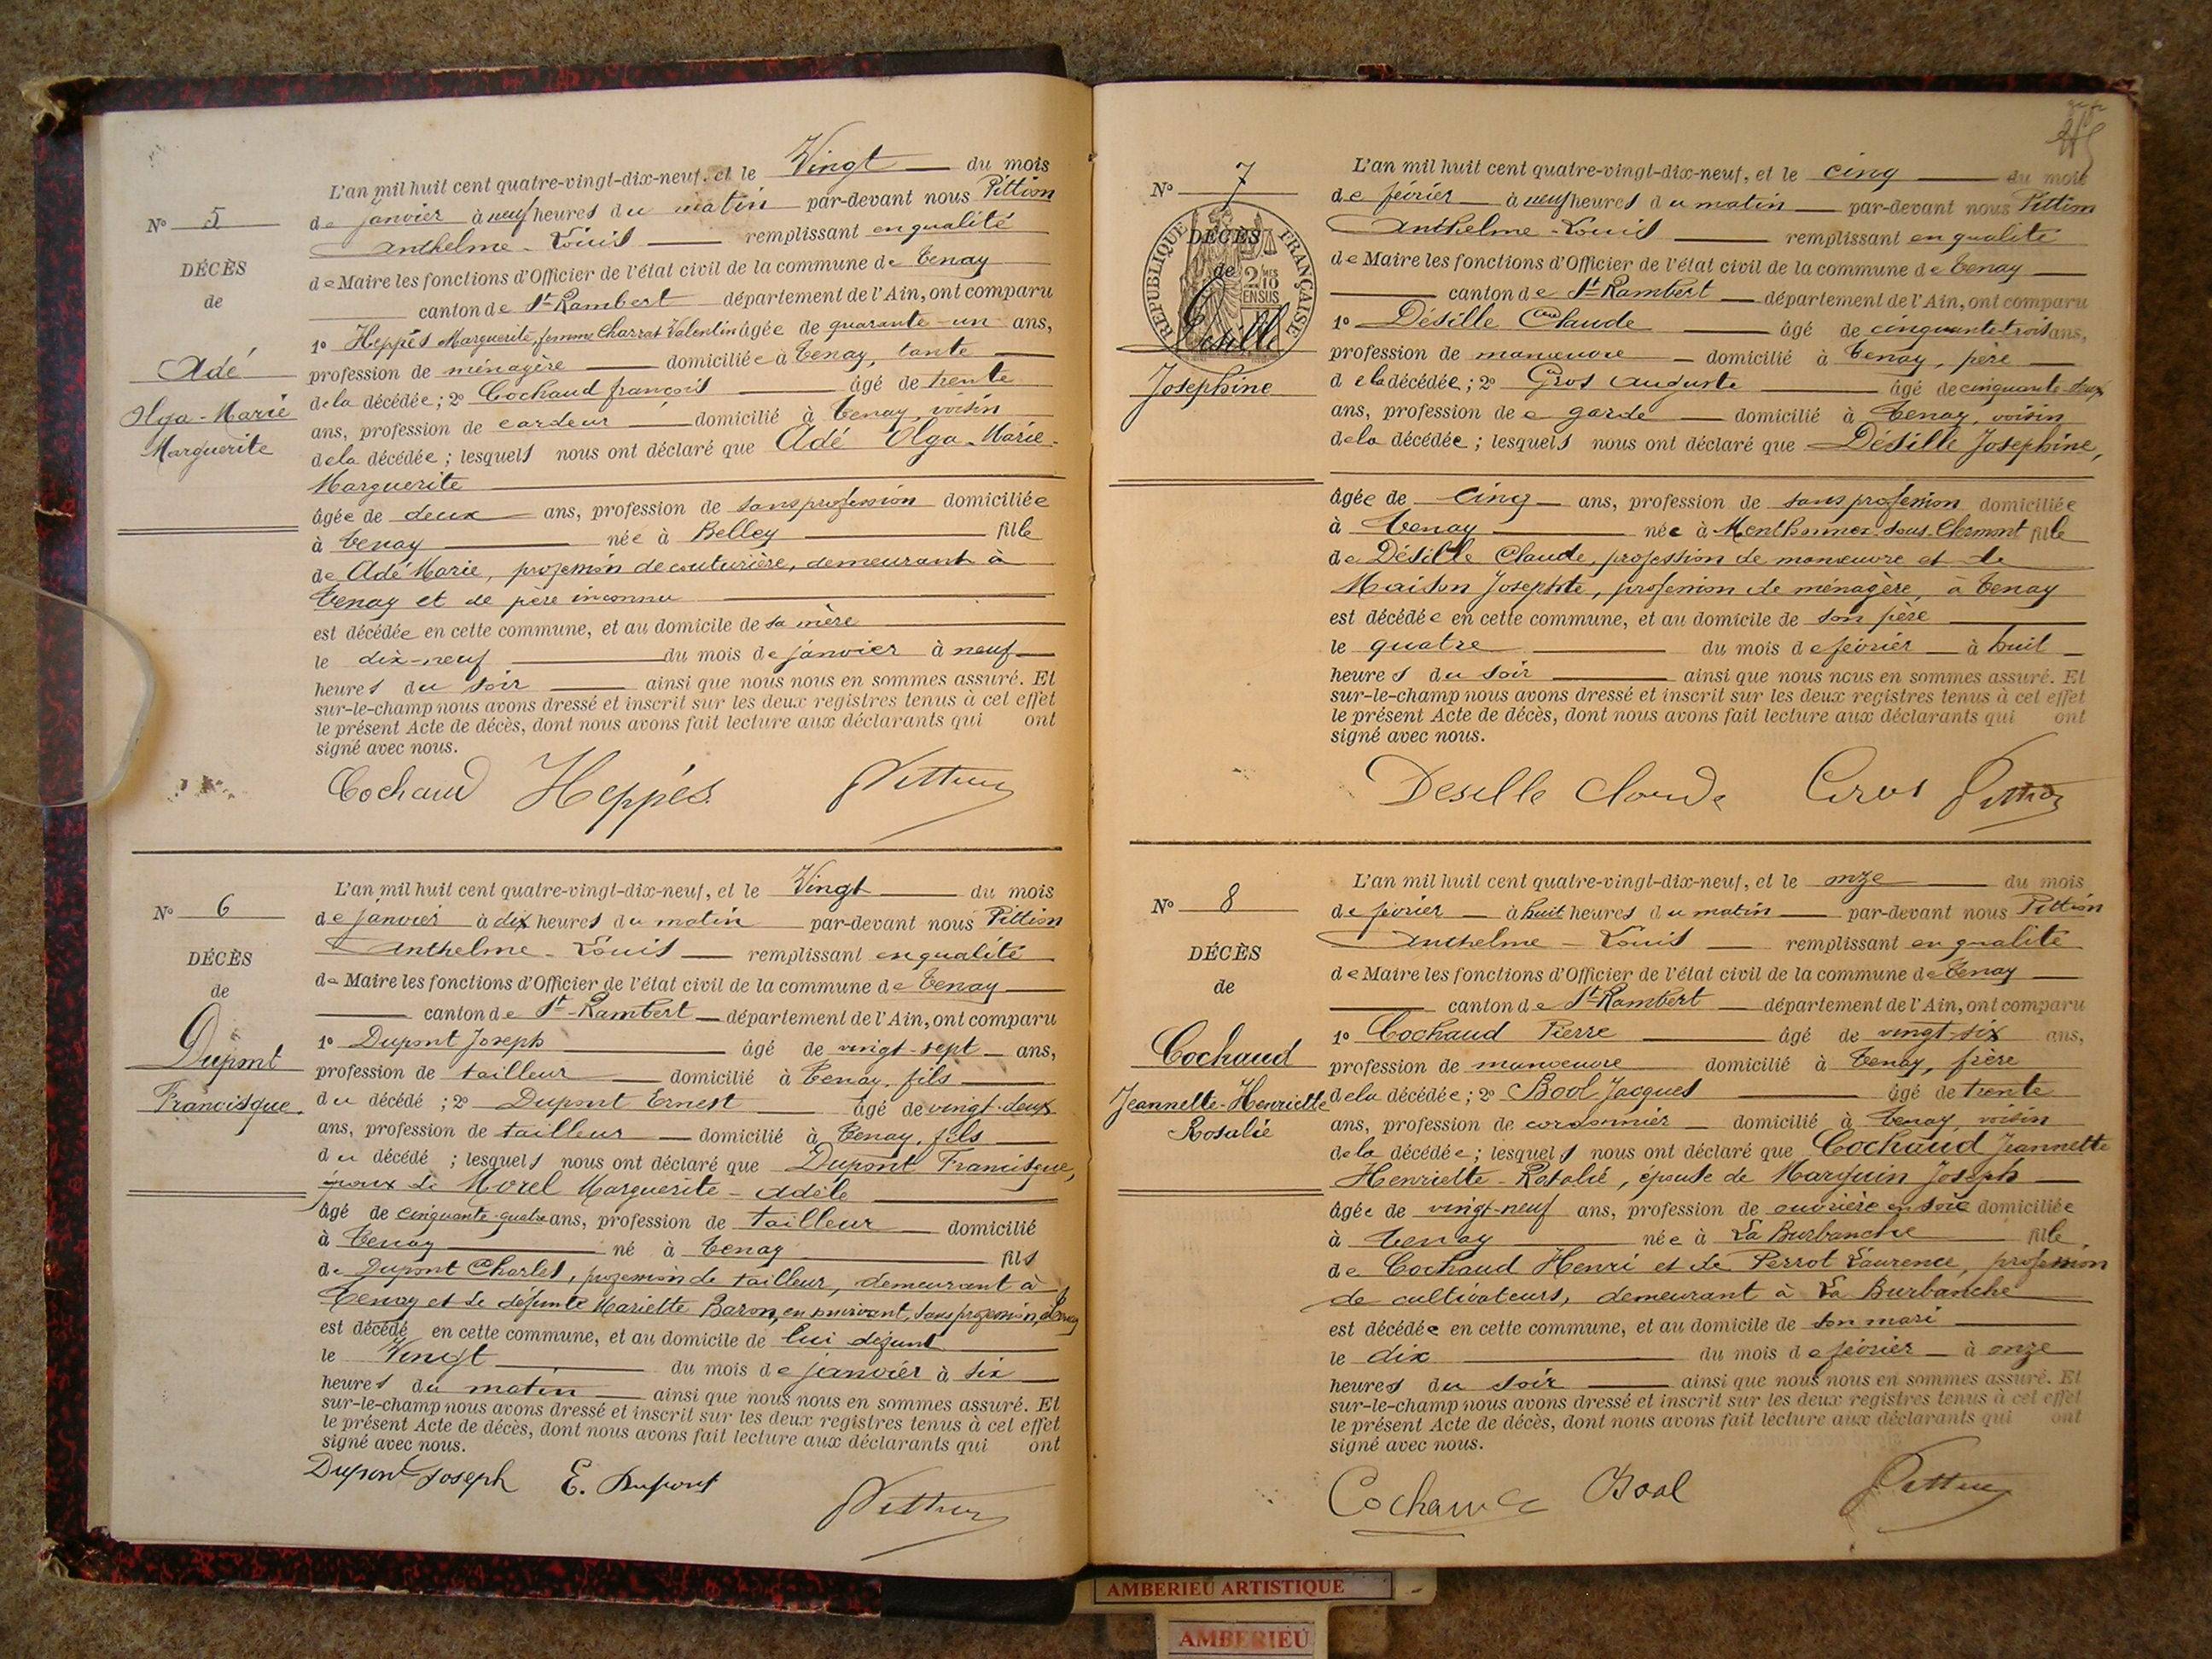 L'an mil huit cent quatre-vingt-dix-neuf, et le Vingt du mois
de janvier à neuf heures du matin par-devant nous Pittion
Anthelme-Louis remplissant en qualité
de Maire les fonctions d'Officier de l'état civil de la commune de Tenay
canton de St-Rambert département de l'Ain, ont comparu
1o Heppés Marguerite, femme Charrat Valentin âgée de quarante-un ans,
profession de ménagère domiciliée à Tenay, tante
de la décédée; 2o Cochaud françois âgé de trente
ans, profession de cardeur domicilié à Tenay, voisin
de la décédée; lesquels nous ont déclaré que Adé Olga-Marie-
Marguerite
âgée de deux ans, profession de sans profession domiciliée
à Tenay née à Belley fille
de Adé Marie, profession de couturière, demeurant à
Tenay et de père inconnu
est décédée en cette commune, et au domicile de sa mère
le dix-neuf du mois de janvier à neuf
heures du soir ainsi que nous nous en sommes assuré. Et
sur-le-champ nous avons dressé et inscrit sur les deux registres tenus à cet effet
le présent Acte de décès, dont nous avons fait lecture aux déclarants qui ont
signé avec nous.
Cochaud Heppés Pittion
No 5
DÉCÈS
de
Adé
Olga-Marie
Marguerite
L'an mil huit cent quatre-vingt-dix-neuf, et le Vingt du mois
de janvier à dix heures du matin par-devant nous Pittion
Anthelme-Louis remplissant en qualité
de Maire les fonctions d'Officier de l'état civil de la commune de Tenay
canton de St-Rambert département de l'Ain, ont comparu
1o Dupont Joseph âgé de vingt-sept ans,
profession de tailleur domicilié à Tenay, fils
du décédé; 2o Dupont Ernest âgé de vingt-deux
ans, profession de tailleur domicilié à Tenay, fils
du décédé; lesquels nous ont déclaré que Dupont Francisque,
époux de Morel Marguerite-Adèle
âgé de cinquante-quatre ans, profession de tailleur domicilié
à Tenay né à Tenay fils
de Dupont Charles, profession de tailleur, demeurant à
Tenay et de défunte Mariette Baron, en survivant, sans profession,
est décédé en cette commune, et au domicile de lui défunt
le Vingt du mois de janvier à six
heures du matin ainsi que nous nous en sommes assuré. Et
sur-le-champ nous avons dressé et inscrit sur les deux registres tenus à cet effet
le présent Acte de décès, dont nous avons fait lecture aux déclarants qui ont
signé avec nous.
Dupont Joseph E. Dupont Pittion
No 6
DÉCÈS
de
Dupont
Francisque.
L'an mil huit cent quatre-vingt-dix-neuf, et le cinq du mois
de février à neuf heures du matin par-devant nous Pittion
Anthelme-Louis remplissant en qualité
de Maire les fonctions d'Officier de l'état civil de la commune de Tenay
canton de St-Rambert département de l'Ain, ont comparu
1o Désille Claude âgé de cinquante-trois ans,
profession de manœuvre domicilié à Tenay, père
de la décédée; 2o Gros Auguste âgé de cinquante-deux
ans, profession de garde domicilié à Tenay, voisin
de la décédée; lesquels nous ont déclaré que Désille Josephine,
âgée de cinq ans, profession de sans profession domiciliée
à Tenay née à Menthonnex-sous-Clermont fille
de Désille Claude, profession de manœuvre et de
Maison Josephte, profession de ménagère, à Tenay
est décédée en cette commune, et au domicile de son père
le quatre du mois de février à huit
heures du soir ainsi que nous nous en sommes assuré. Et
sur-le-champ nous avons dressé et inscrit sur les deux registres tenus à cet effet
le présent Acte de décès, dont nous avons fait lecture aux déclarants qui ont
signé avec nous.
Deselle Claude Gros Pittion
No 7
DÉCÈS
de
Désille
Josephine
RÉPUBLIQUE FRANÇAISE
2/10 EN SUS
L'an mil huit cent quatre-vingt-dix-neuf, et le onze du mois
de février à huit heures du matin par-devant nous Pittion
Anthelme-Louis remplissant en qualité
de Maire les fonctions d'Officier de l'état civil de la commune de Tenay
canton de St-Rambert département de l'Ain, ont comparu
1o Cochaud Pierre âgé de vingt-six ans,
profession de manœuvre domicilié à Tenay, frère
de la décédée; 2o Bool Jacques âgé de trente
ans, profession de cordonnier domicilié à Tenay, voisin
de la décédée; lesquels nous ont déclaré que Cochaud Jeannette
Henriette-Rosalie, épouse de Marquin Joseph
âgée de vingt-neuf ans, profession de ouvrière en soie domiciliée
à Tenay née à La Burbanche fille
de Cochaud Henri et de Perrot Laurence, profession
de cultivateurs, demeurant à La Burbanche
est décédée en cette commune, et au domicile de son mari
le dix du mois de février à onze
heures du soir ainsi que nous nous en sommes assuré. Et
sur-le-champ nous avons dressé et inscrit sur les deux registres tenus à cet effet
le présent Acte de décès, dont nous avons fait lecture aux déclarants qui ont
signé avec nous.
Cochaud Bool Pittion
No 8
DÉCÈS
de
Cochaud
Jeannette-Henriette
Rosalie
AMBERIEU ARTISTIQUE
AMBERIEU